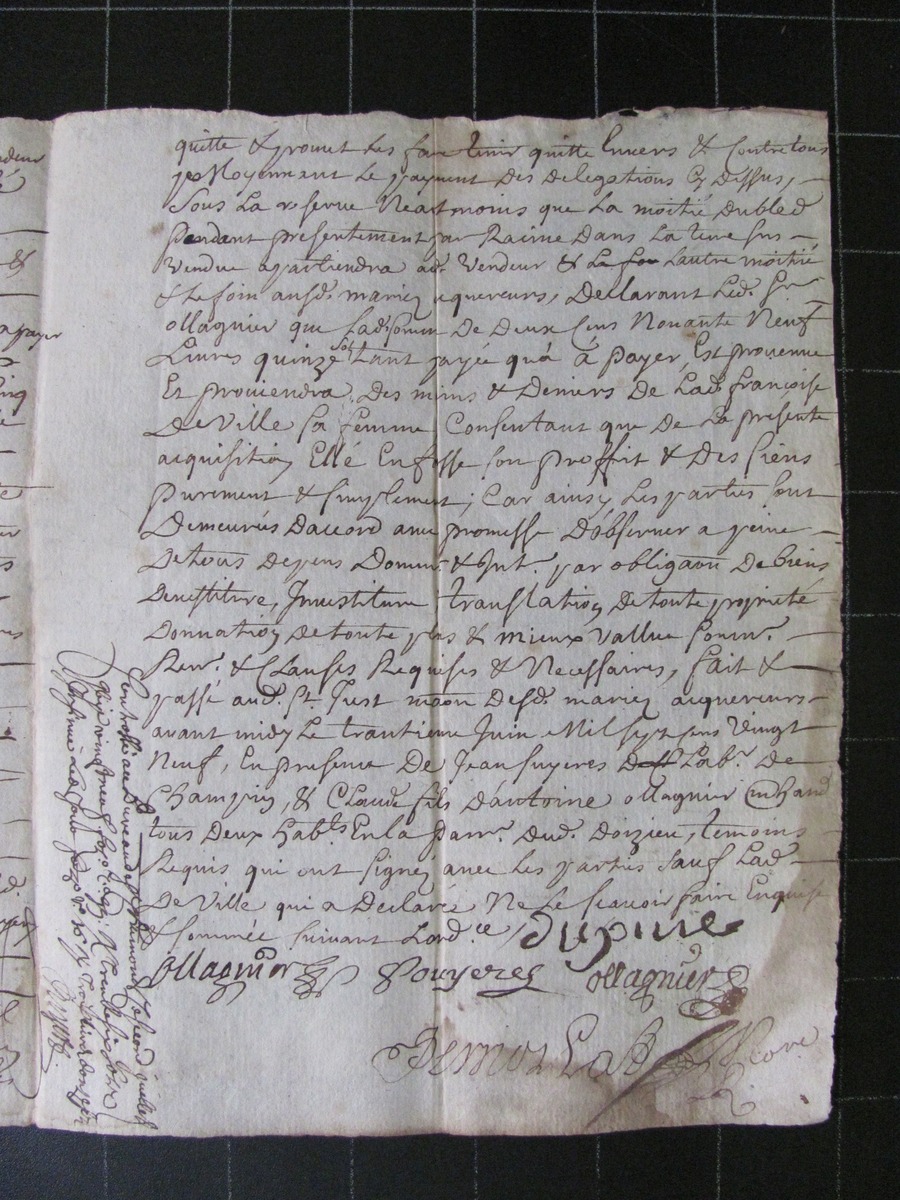 quitte & promet les faire tenir quitte Envers & Contre tous
Moyennant Le payment Des Delegations Cy Dessus,
Sous La reserve Neantmoins que La moitié Dubled
Pendant presentement par Racine Dans La terre sus
Vendue apartiendra aud. Vendeur & Le foin Lautre moitié
& Le foin ausd. mariez aquereurs, Declarant Led. Sr.
ollagnier que Lad. somme De Deux Cens Nonante Neuf
Livres quinze sol tant payée qu'à à Payer, Est provenue
Et proviendra Des mins & Deniers De Lad. françoise
De Ville sa femme Consentant que De La presente
acquisition Elle En fasse son proffit & Des siens
Purement & simplement; Car ainsy Les parties sont
Demeurés Daccord avec promesse D'observer a peine
De tous Depens Domm. & Int. par obligaon De biens
Devestiture, Investiture, translation De toute proprieté
Donnation De toute plus & mieux Vallue soum.
Ren. & Clauses Requises & Necessaires, fait &
passé aud. St. Just maon Desd. mariez aquereurs
avant midy Le trantieme Juin Mil sept sens Vingt
Neuf, En presence De Jean fuyeres Lab. De
Champriez, & Claude fils D'antoine ollagnier mhand
tous Deux habts. En la Parr. Dud. Doizieu, temoins
Requis qui ont signez avec Les parties sauf Lad.
De Ville qui a Declarée Ne Le scavoir faire Enquise
& sommée suivant Lord.ce Dupine
ollagnier Fouyeres ollagnier
Controllé au Bureau de St Chaumond le second juillet